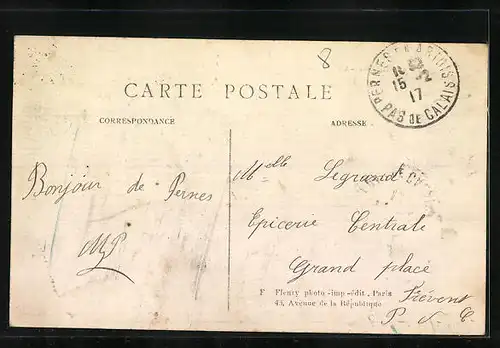 8
PERNES EN ARTOIS
18
15 -2
17
PAS DE CALAIS
CARTE POSTALE
CORRESPONDANCE
ADRESSE
Bonjour de Pernes
MP
Melle Legrand
Epicerie Centrale
Grand place
Frévent
P. d. C.
F Fleury photo-imp-édit. Paris
43, Avenue de la République